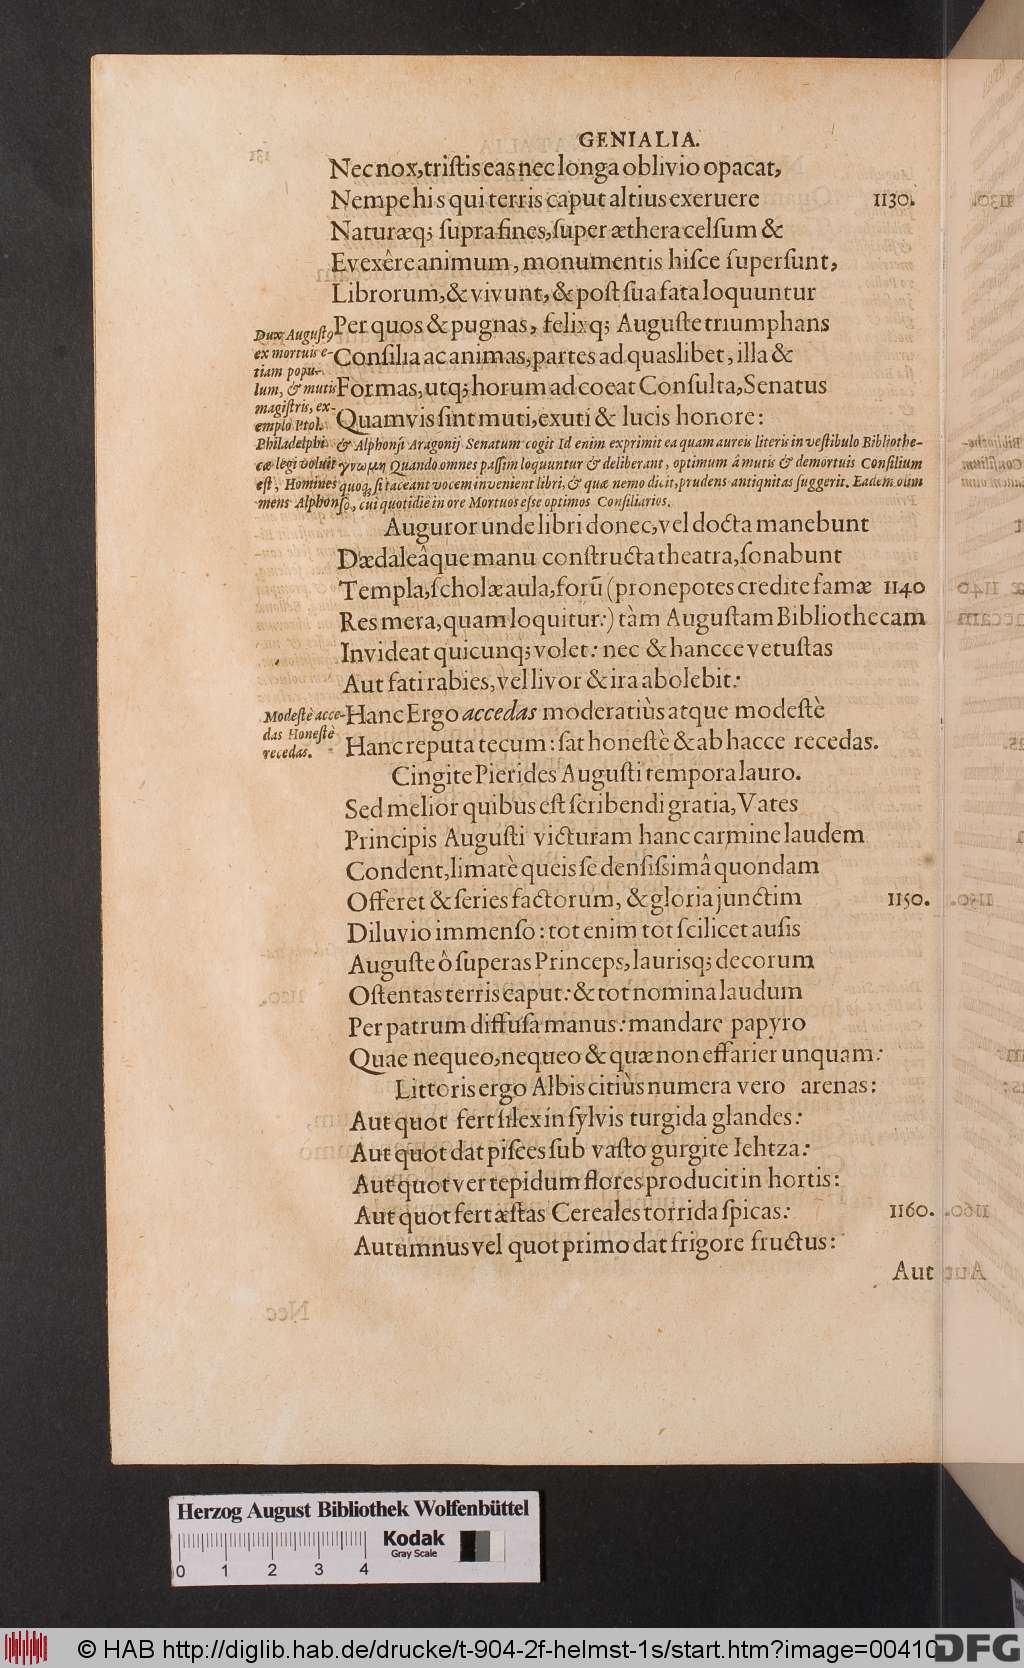 GENIALIA.
Nec nox, triſtis eas nec longa oblivio opacat,
Nempe his qui terris caput altius exeruere 1130.
Naturæq; ſupra fines, ſuper æthera celſum &
Evexêre animum, monumentis hiſce ſuperſunt,
Librorum, & vivunt, & poſt ſua fata loquuntur
Per quos & pugnas, felixq; Auguſte triumphans
Conſilia ac animas, partes ad quaslibet, illa &
Formas, utq; horum ad coeat Conſulta, Senatus
Quamvis ſint muti, exuti & lucis honore:
Dux Auguſt9
ex mortuis e-
tiam popu-
lum, & mutis
magiſtris, ex-
emplo Ptol.
Philadelphi & Alphonſi Aragonij Senatum cogit Id enim exprimit ea quam aureis literis in veſtibulo Bibliothe-
cæ legi voluit γνωμη Quando omnes paſſim loquuntur & deliberant, optimum â mutis & demortuis Conſilium
eſt, Homines quoq, ſi taceant vocem invenient libri, & quæ nemo dicit, prudens antiquitas ſuggerit. Eadem olim
mens Alphonſo, cui quotidie in ore Mortuos eſse optimos Conſiliarios.
Auguror unde libri donec, vel docta manebunt
Dædaleâque manu conſtructa theatra, ſonabunt
Templa, ſcholæ aula, forũ (pronepotes credite famæ 1140
Res mera, quam loquitur:) tàm Auguſtam Bibliothecam
Invideat quicunq; volet: nec & hancce vetuſtas
Aut fati rabies, vel livor & ira abolebit:
Hanc Ergo accedas moderatiùs atque modeſtè
Hanc reputa tecum: ſat honeſtè & ab hacce recedas.
Modeſtè acce-
das Honeſtè
recedas.
Cingite Pierides Auguſti tempora lauro.
Sed melior quibus eſt ſcribendi gratia, Vates
Principis Auguſti victuram hanc carmine laudem
Condent, limatè queis ſe denſiſsimâ quondam
Offeret & ſeries factorum, & gloria junctim 1150.
Diluvio immenſo: tot enim tot ſcilicet auſis
Auguſte ô ſuperas Princeps, laurisq; decorum
Oſtentas terris caput: & tot nomina laudum
Per patrum diffuſa manus: mandare papyro
Quae nequeo, nequeo & quæ non effarier unquam:
Littoris ergo Albis citiùs numera vero arenas:
Aut quot fert ſilex in ſylvis turgida glandes:
Aut quot dat piſces ſub vaſto gurgite Iehtza:
Aut quot ver tepidum flores producit in hortis:
Aut quot fert æſtas Cereales torrida ſpicas: 1160.
Autumnus vel quot primo dat frigore fructus:
Aut
Herzog August Bibliothek Wolfenbüttel
Kodak
Gray Scale
0 1 2 3 4
© HAB http://diglib.hab.de/drucke/t-904-2f-helmst-1s/start.htm?image=00410
DFG